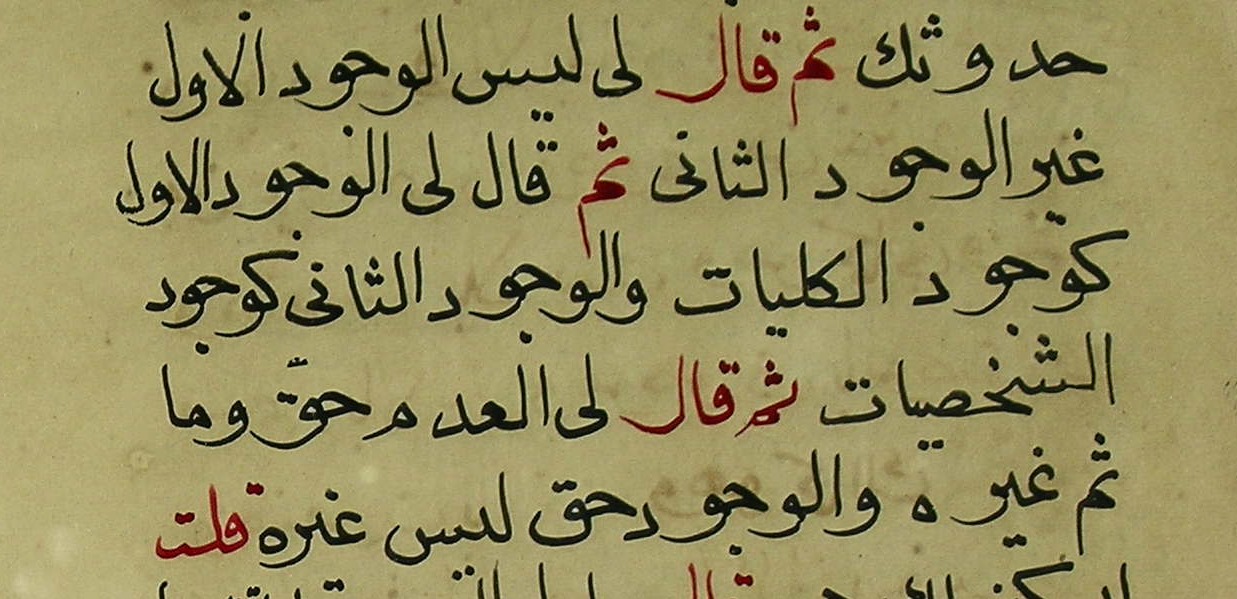 حدوثك ثم قال لى ليس الوجود الاول
غير الوجود الثانى ثم قال لى الوجود الاول
كوجود الكليات والوجود الثانى كوجود
الشخصيات ثم قال لى العدم حقّ وما
ثم غيره والوجود حق ليس غيره قلت